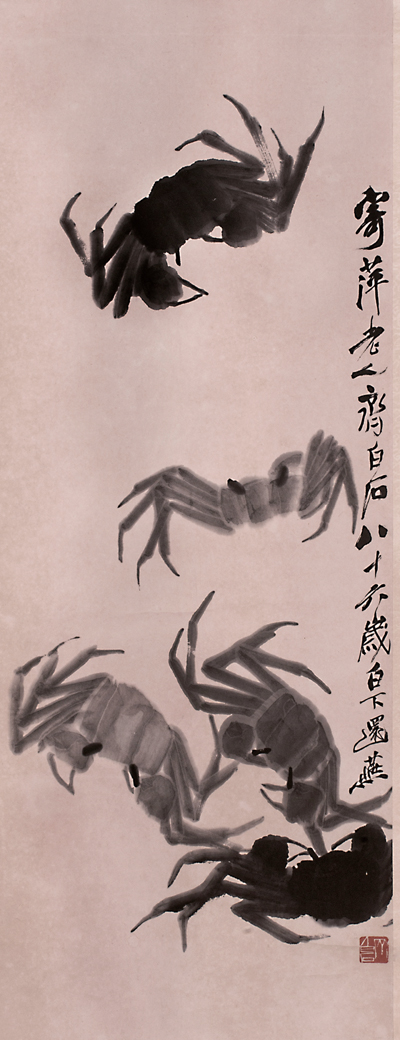 寄萍老人齊白石八十六歲白下還燕